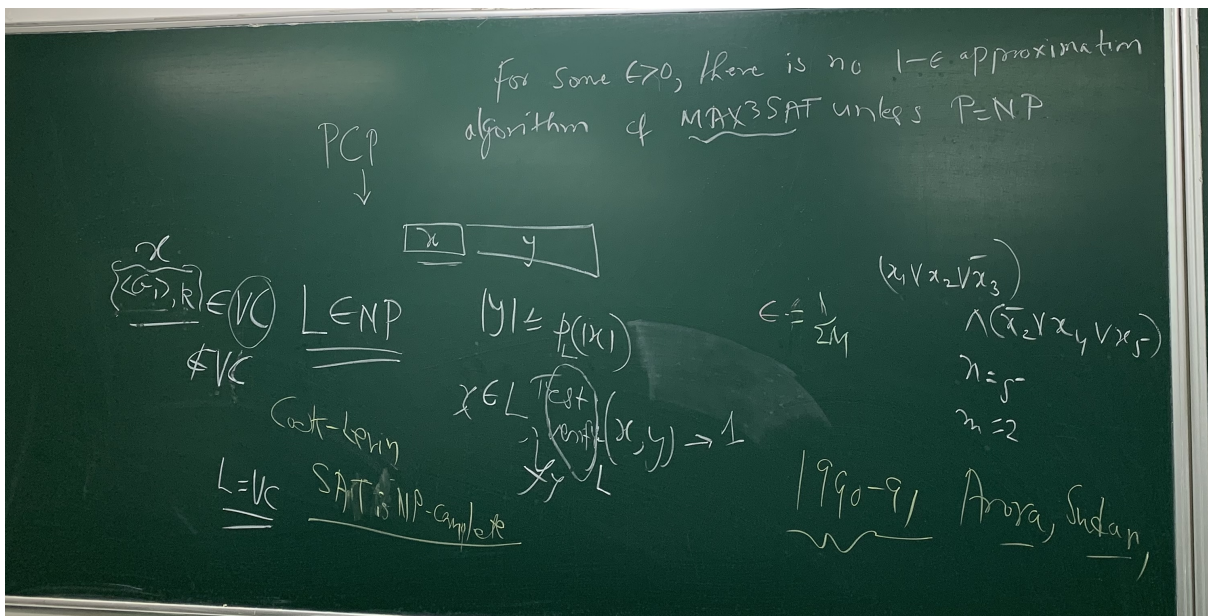 For some ϵ>0, there is no 1-ϵ approximation
algorithm of MAX3SAT unless P=NP
PCP
↓
x y
x
<G>, k ∈ VC
∉ VC
L∈NP
|y| ≤ p_L(|x|)
x∈L Test
verify (x, y) → 1
L
Cook-Levin
SAT is NP-complete
L=VC
ϵ = 1/2M
(x₁ V x₂ V x̄₃)
∧ (x̄₂ V x₄ V x₅)
n=5
m=2
1990-91 Arora, Sudan,